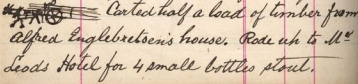 Carted half a load of timber from
Alfred Englebretsen's house. Rode up to Mc
Leods Hotel for 4 small bottles stout.